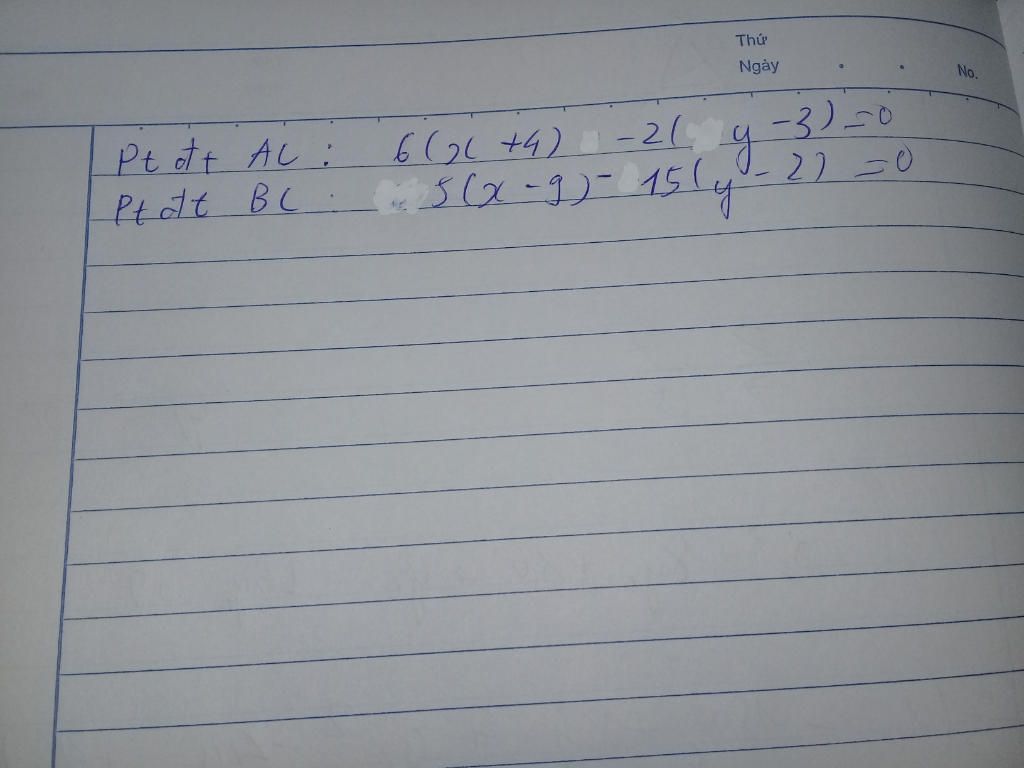 Thứ
Ngày . . No.
Pt đt AC : 6(x +4) -2( y -3) =0
Pt đt BC : 5(x - 9) - 15(y - 2) =0